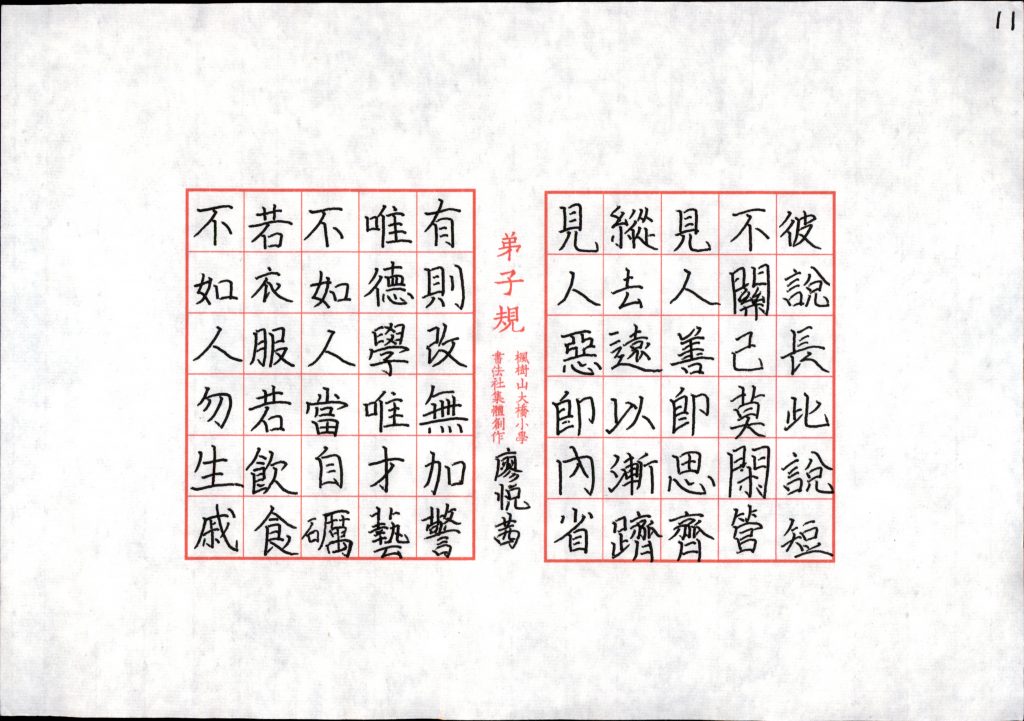 11
彼說長此說短
不關己莫閑管
見人善即思齊
縱去遠以漸躋
見人惡即內省
弟子規
楓樹山大橋小學
書法社集體創作
廖悦茜
有則改無加警
唯德學唯才藝
不如人當自礪
若衣服若飲食
不如人勿生戚